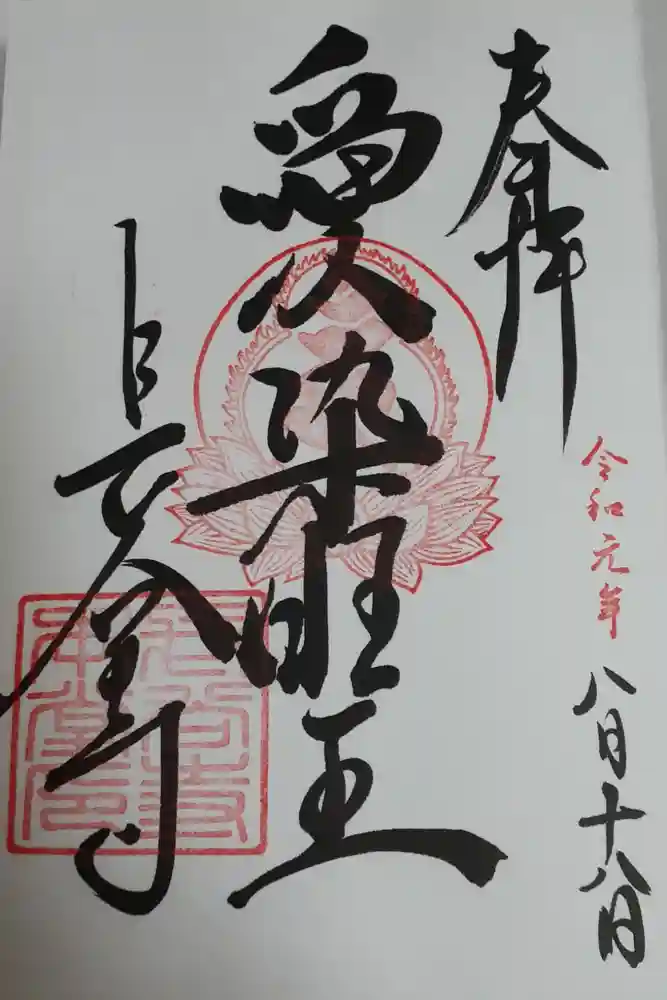 奉拝
令和元年 八月十八日
愛染明王
長谷寺